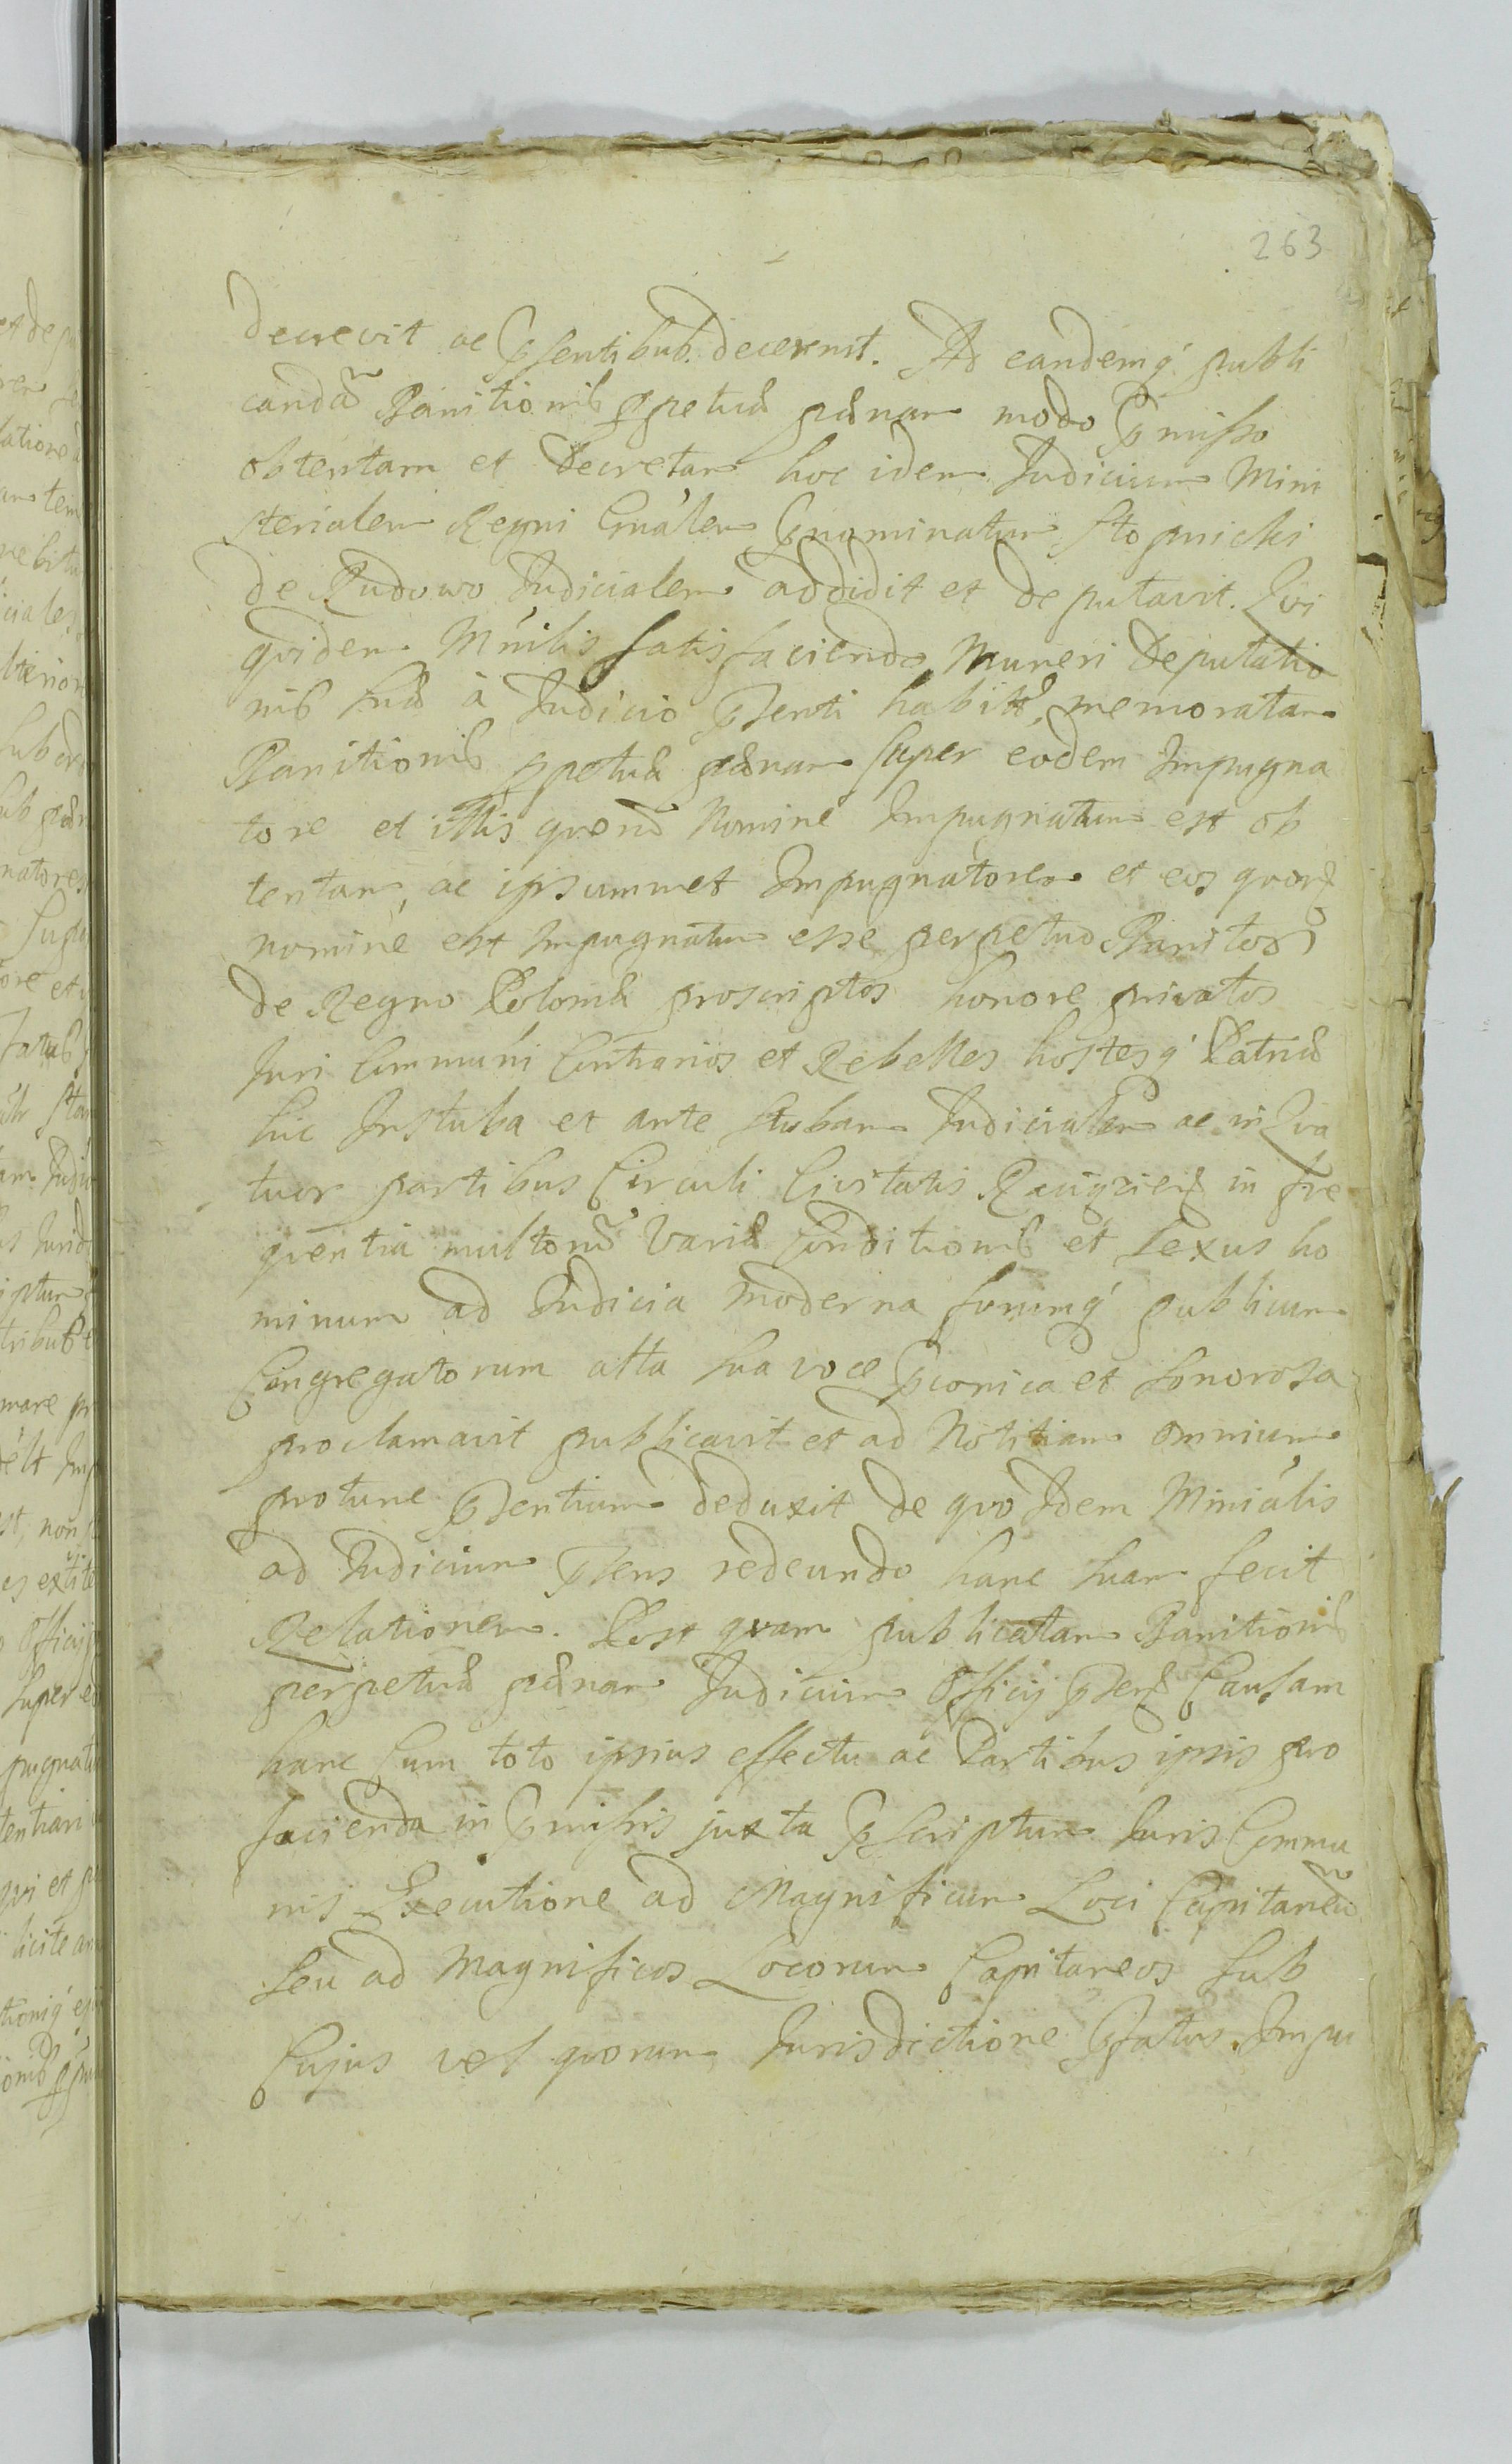 263
decrevit ac pſentibus decernit. Ad eandemq́ publi
candã Banitionis ppetuæ pænam modo pmiſſo
obtentam et Decretam hoc idem Judicium Mini
sterialem Regni Gnálem pnominatum Stopnicki
de Rudowo Judicialem addidit et deputavit. Qvi
qvidem Mńilis ſatisfaciendo Muneri Deputatio
nis ſuæ à Judicio pſenti habitæ, memoratam
Banitionis ppetuæ pænam ſuper eodem Impugna
tore et illis qvoru Nomine Impugnatum est ob
tentam, ac ipsummet Impugnatorem et eos qvorũ
nomine est Impugnatum esse perpetuo Banitos
de Regno Poloniæ proscriptos honore privatos
Juri Communi Contrarios et Rebelles hostesq́ Patriæ
hic Instuba et ante Stubam Judicialem ac in Qva
tuor partibus Circuli Civitatis in fre
qventia multorũ Variæ Conditionis et Sexus ho
minum ad Judicia moderna forumq́ publicum
Congregatorum alta ſua voce pconica et ſonoroſa
proclamavit publicavit et ad Notitiam omnium
protunc pſentium deduxit de qvo Idem Miniális
ad Judicium pſens redeundo hanc ſuam fecit
Relationem. Post qvam publicatam Banitionis
perpetuæ pænam Judicium Officij pſens Cauſam
hanc Cum toto ipsius effectu ac Partibus ipsis pro
facienda in pmiſsis juxta pſcriptum Juris Commu
nis Executione ad Magnificum Loci Capitaneũ
ſeu ad Magnificos Locorum Capitaneos ſub
Cujus vel qvorum Jurisdictione pfatus Impu